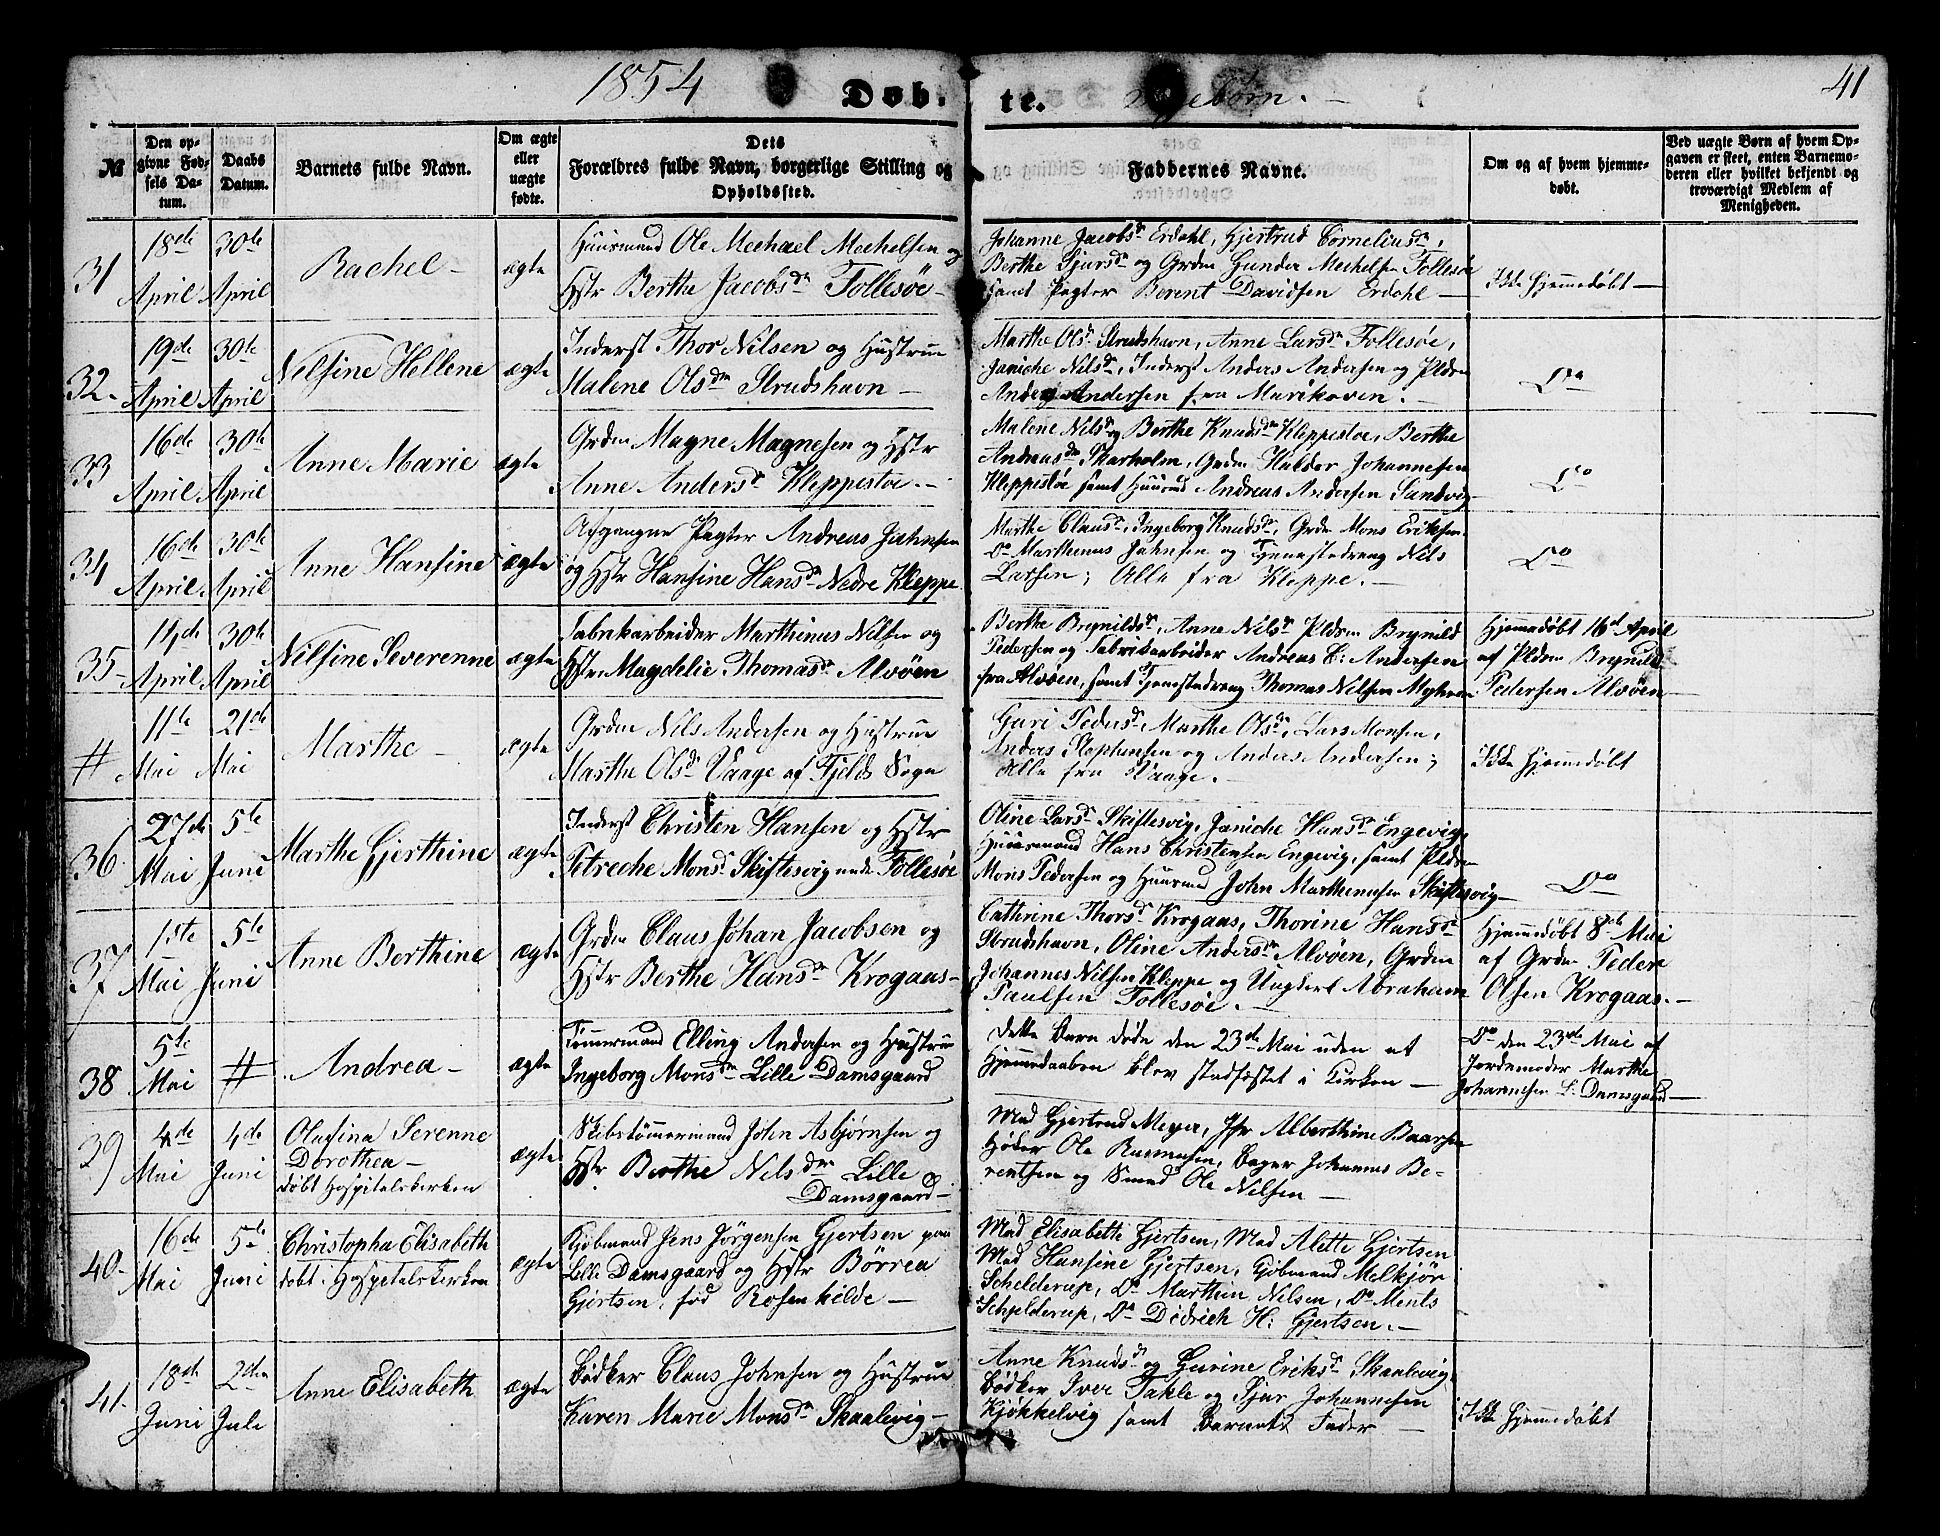 1854 Døb. te. 41
№
Den op-
givne Fød-
sels Da-
tum.
Daabs
Datum.
Barnets fulde Navn.
Om ægte
eller
uægte
fødte.
Dets
Forældres fulde Navn, borgerlige Stilling og
Opholdssted.
Faddernes Navne.
Om og af hvem hjemme-
døbt.
Ved uægte Børn af hvem Op-
gaven er skeet, enten Barnemo-
deren eller hvilket bekjendt og
troværdigt Medlem af
Menigheden.
31
18de
April
30te
April
Rachel –
ægte
Huusmand Ole Mechael Mechelsen og
Hstr Berthe Jacobsdr Follesöe –
Johanne Jacobsdr Erdahl, Gjertrud Corneliusdr,
Berthe Sjursdr og Grdm Gunder Mechelsen Follesöe
samt Pagter Berent Davidsen Erdahl –
Ikke hjemmedöbt –
32.
19de
April
30te
April
Nilsine Hellene
ægte
Inderst Thor Nilsen og Hustrue
Malene Olsdtr Strudshavn –
Marthe Olsdr Strudshavn, Anne Larsdr Follesöe,
Janiche Nilsdr, Inderst Anders Andersen og Pldsm
Anders Andersen fra Marikoven. –
Do
33
16de
April
30te
April
Anne Marie
ægte
Grdm Magne Magnesen og Hstr
Anne Andersdr Kleppestoe. –
Malene Nilsdr og Berthe Knudsdtr Kleppestoe, Berthe
Andreasdtr Skarholm, Grdm Haldor Johannesen
Kleppestöe samt Huusmd Andreas Andersen Sandvig
Do
34
16de
April
30te
April
Anne Hansine
ægte
Afgangne Pagter Andreas Jahnsen
og Hstr Hansine Hansdr Nedre Kleppe
Marthe Clausdr, Ingeborg Knudsdr, Grdm Mons Eriksen
Do Marthinus Jahnsen og Tjenestedreng Nils
Larsen; Alle fra Kleppe. –
Do
35
14de
April
30te
April
Nilsine Severenne
ægte
Fabrikarbeider Marthinus Nilsen og
Hstr Magdelie Thomasdr Alvöen
Berthe Brynildsdr, Anne Nilsdr Pldsm Brynild
Pedersen og Fabrikarbeider Andreas C: Andersen
fra Alvöen, samt Tjenestedreng Thomas Nilsen Myhren
Hjemmedöbt 16de April
af Pldsm Brynild
Pedersen Alvöen
#
11te
Mai
21de
Mai
Marthe –
ægte
Grdm Nils Andersen og Hustrue
Marthe Olsdr Vaage af Fjelds Sogn
Guri Pedersdr, Marthe Olsdr, Lars Monsen,
Anders Stephensen og Anders Andersen;
Alle fra Vaage. –
Ikke hjemmedöbt
36
27de
Mai
5te
Juni
Marthe Gjerthine
ægte
Inderst Christen Hansen og Hstr
Petreche Monsdr Skiftesvig unde Follesöe
Oline Larsdr Skiftesvig, Janiche Hansdr Engevig,
Huusmand Hans Christensen Engevig, samt Pldsm
Mons Pedersen og Huusmd John Marthinussen Skiftesvig –
Do
37
1ste
Mai
5te
Juni
Anne Berthine
ægte
Grdm Claus Johan Jacobsen og
Hstr Berthe Hansdtr Krogaas –
Cathrine Thorsdr Krogaas, Thorine Hansdr
Strudshavn, Oline Andersdtr Alvöen, Grdm
Johannes Nilsen Kleppe og Ungkarl Abraham
Paulsen Follesöe. –
Hjemmedöbt 8de Mai
af Grdm Peder
Olsen Krogaas. –
38
5te
Mai
#
Andrea –
ægte
Tömmermand Elling Andersen og Hustrue
Ingeborg Monsdtr Lille Damsgaard
Dette Barn döde den 23de Mai uden at
Hjemmedaaben blev stadfæstet i Kirken –
Do den 23de Mai af
Jordemoder Marthe
Johannesen L: Damsgaard –
39
4de
Mai
4de
Juni
Olufina Serenne
Dorothea –
döbt Hospitalskirken
ægte
Skibstömmermand John Asbjørnsen og
Hstr Berthe Nilsdtr Lille
Damsgaard –
Mad Gjertrud Meyer, Jfr Alberthine Baarsen
Høker Ole Rasmusen, Bager Johannes Be-
rentsen og Smed Ole Nilsen –
40.
16de
Mai
5te
Juni
Christopha Elisabeth
döbt i Hospitalskirken
ægte
Kjöbmand Jens Jörgensen Gjertsen paa
Lille Damsgaard og Hstr Börrea
Gjertsen, föd Rosenkilde –
Mad Elisabeth Gjertsen, Mad Alette Gjertsen
Mad Hansine Gjertsen, Kjöbmand Melkjör
Schelderup, Do Marthin Nilsen, Do Ments
Schjelderup, Do Didrich H: Gjertsen. –
41.
18de
Juni
2den
Juli
Anne Elisabeth
ægte
Bödker Claus Johnsen og Hustrue
Karen Marie Monsdtr Skaalevig –
Anne Knudsdr og Gurine Eriksdr Skaalevig,
Bödker Iver Takle og Sjur Johannesen
Kjökkelvig samt Barnets Fader –
Ikke hjemmedöbt